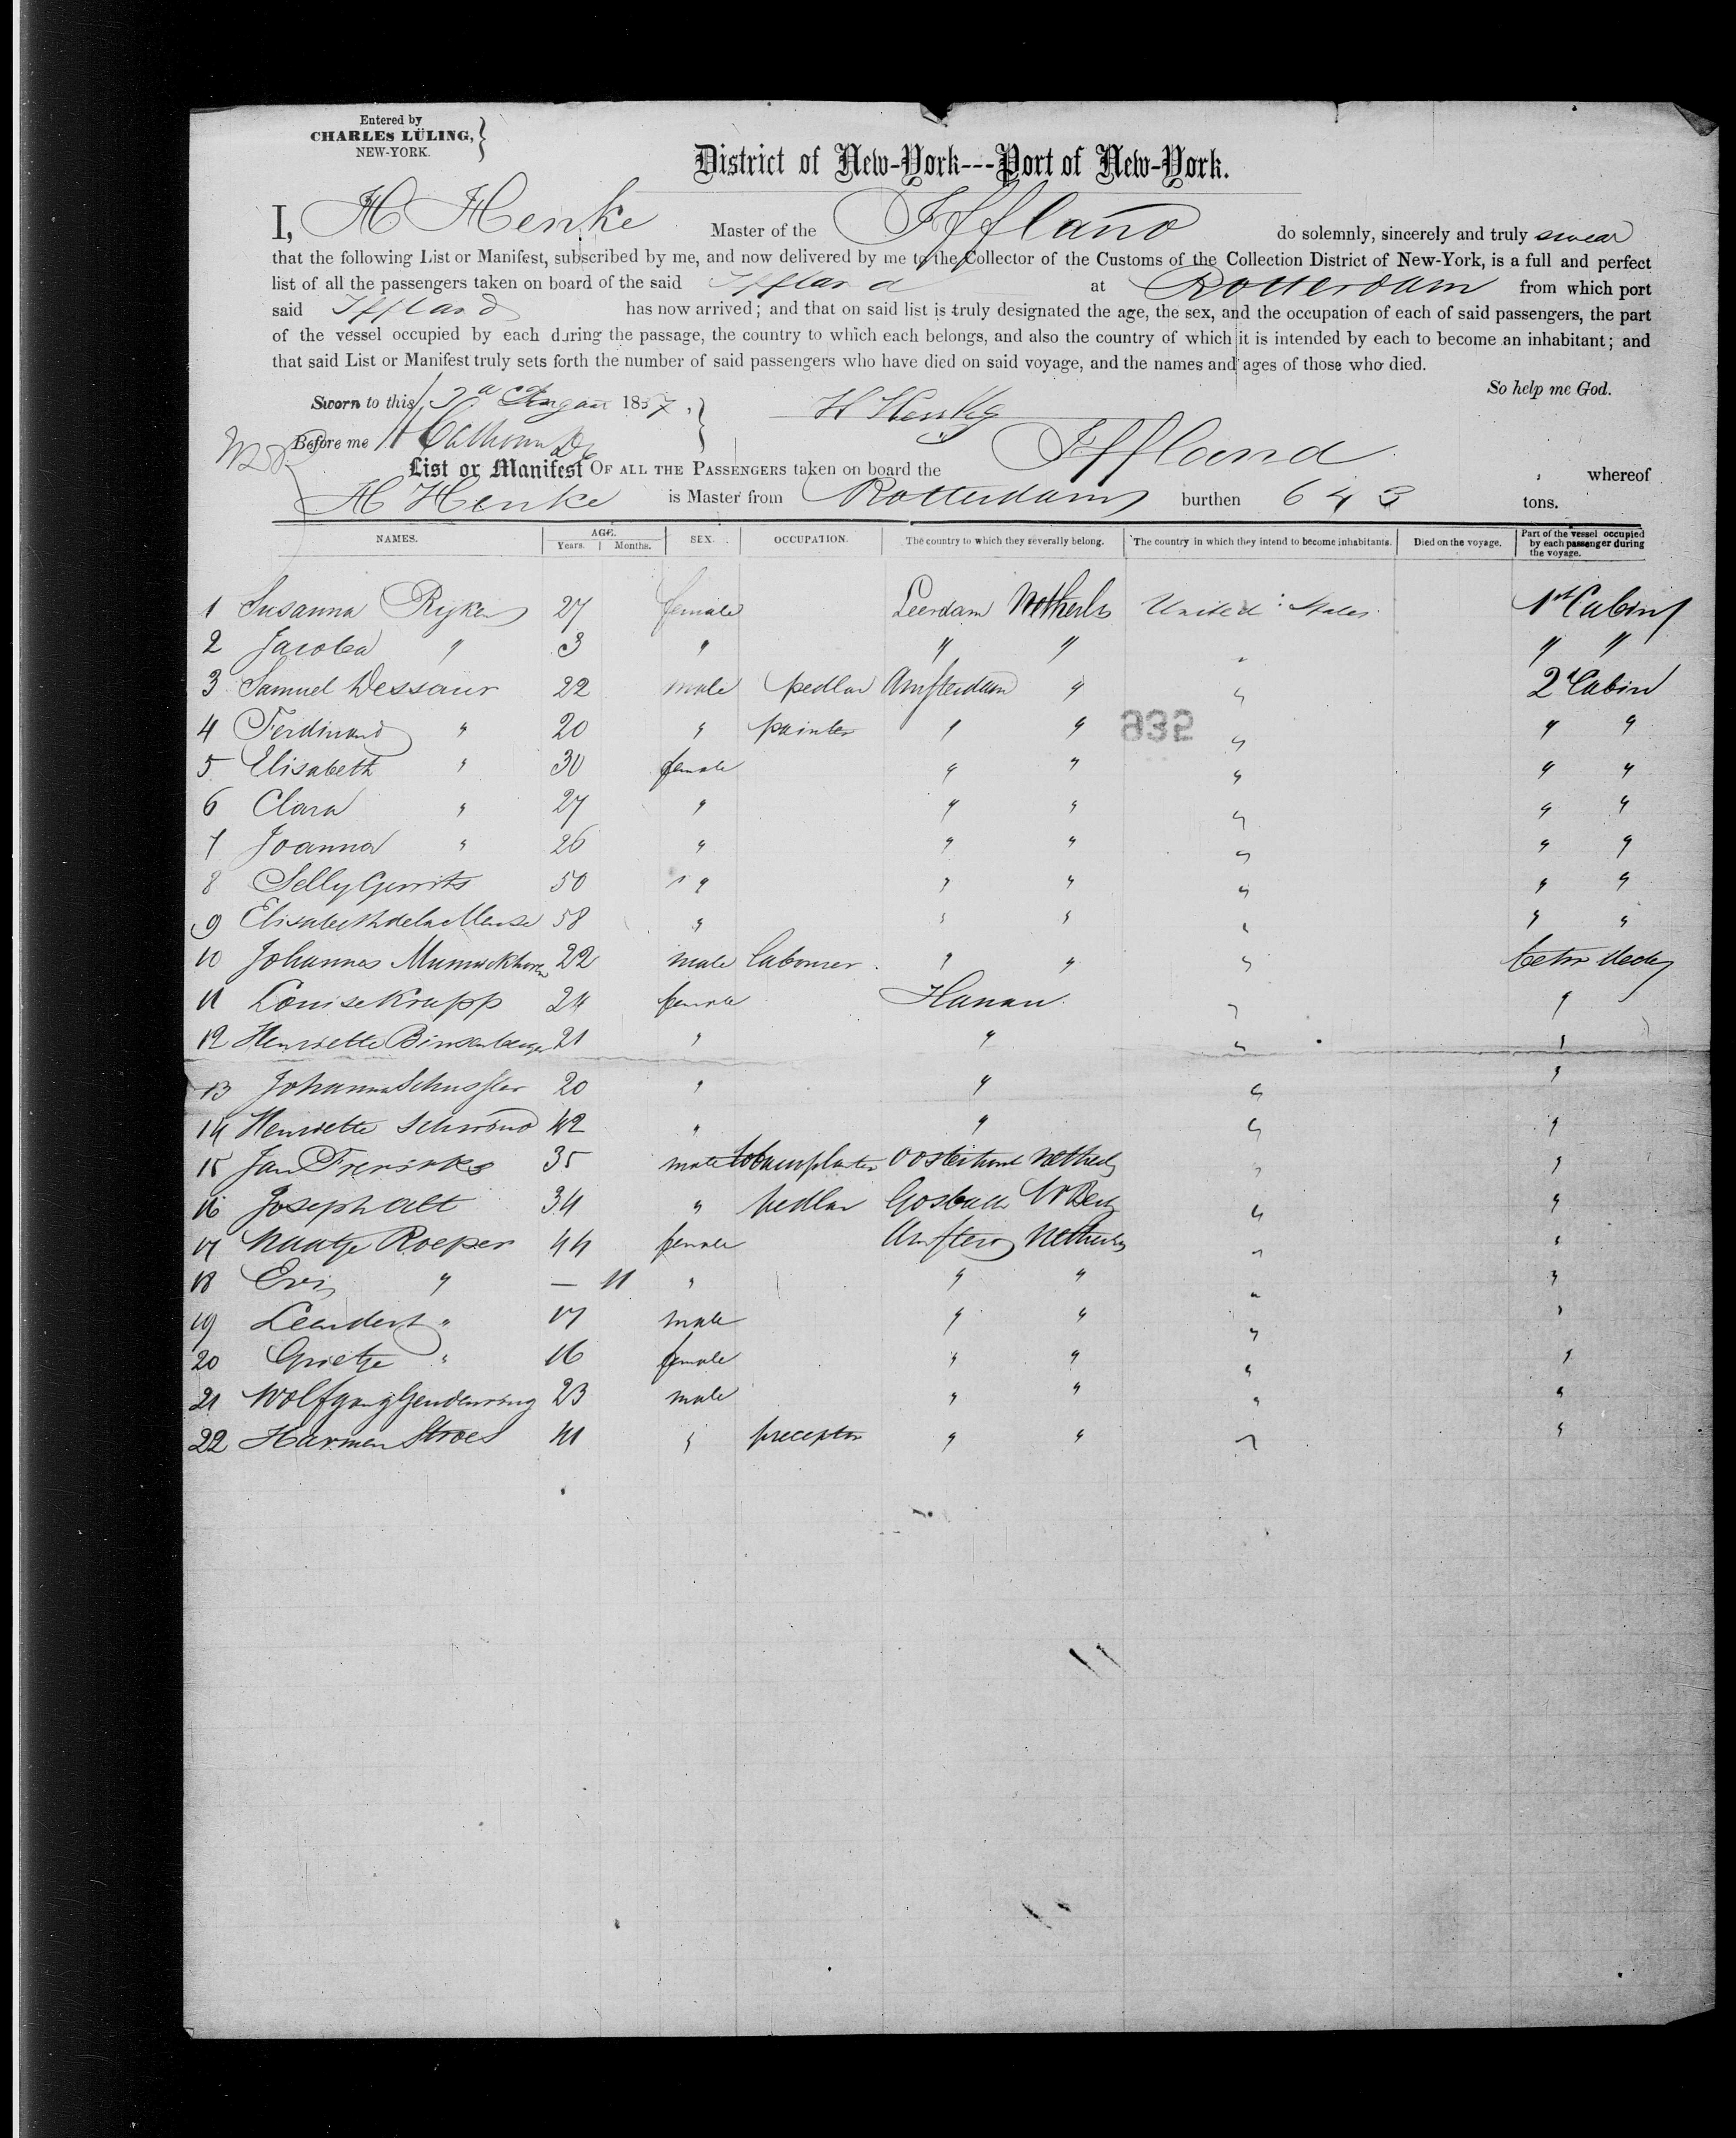 Entered by
CHARLES LÜLING,
NEW-YORK.
District of New-York---Port of New-York.
I, H Henke Master of the Iffland do solemnly, sincerely and truly swear
that the following List or Manifest, subscribed by me, and now delivered by me to the Collector of the Customs of the Collection District of New-York, is a full and perfect
list of all the passengers taken on board of the said Iffland at Rotterdam from which port
said Iffland has now arrived; and that on said list is truly designated the age, the sex, and the occupation of each of said passengers, the part
of the vessel occupied by each during the passage, the country to which each belongs, and also the country of which it is intended by each to become an inhabitant; and
that said List or Manifest truly sets forth the number of said passengers who have died on said voyage, and the names and ages of those who died.
So help me God.
Sworn to this 3d August 1857, H Henke
Before me Calhoun
List or Manifest OF ALL THE PASSENGERS taken on board the Iffland, whereof
H Henke is Master from Rotterdam burthen 643 tons.
NAMES. AGE. SEX. OCCUPATION. The country to which they severally belong. The country in which they intend to become inhabitants. Died on the voyage. Part of the vessel occupied by each passenger during the voyage.
Years. Months.
1 Susanna Ryken 27 female Leerdam Netherls United States 1st Cabin
2 Jacoba " 3 " " " " " "
3 Samuel Dessaur 22 male pedlar Amsterdam " " 2d Cabin
4 Ferdinand " 20 " painter " " " " "
932
5 Elisabeth " 30 female " " " " "
6 Clara " 27 " " " " " "
7 Joanna " 26 " " " " " "
8 Selly Gerrits 50 " " " " " "
9 Elisabeth de la Meuse 58 " " " " " "
10 Johannes 22 male labourer " " "
11 Louise Krupp 24 female Hanau " "
12 Henriette 21 " " " "
13 Johanna Schussler 20 " " " "
14 Henriette 42 " " " "
15 Jan Frerinks 35 male Oosterhout Netherls " "
16 Joseph Alt 34 " pedlar " "
17 Naatje Roeper 44 female Amsterd Netherls " "
18 " — 11 " " " " "
19 Leendert " 17 male " " " "
20 Grietje " 16 female " " " "
21 Wolfgang 23 male " " " "
22 Harmen Stroes 41 " preceptor " " " "